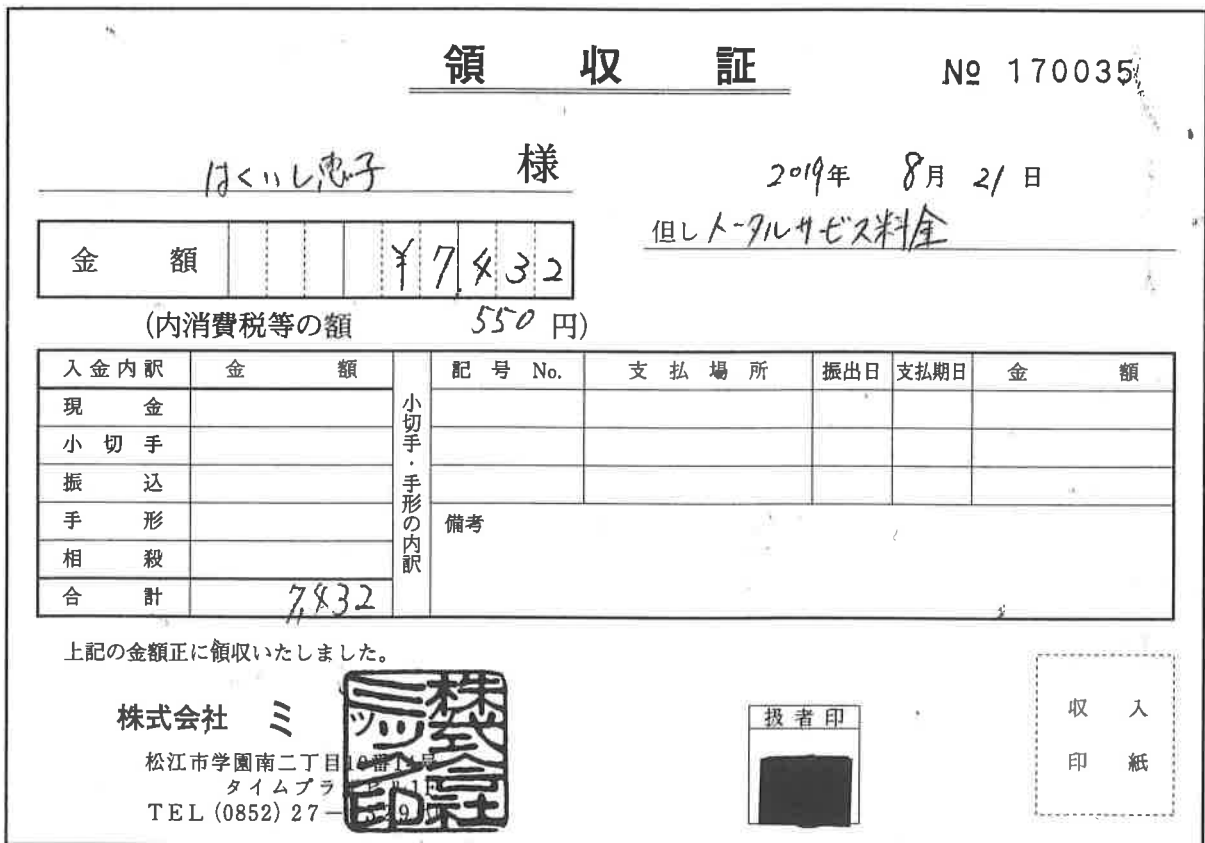 領収証
№ 170035
はくいし恵子 様
2019年 8月 21日
但し トータルサービス料金
金額 ¥7,432
(内消費税等の額 550 円)
入金内訳 金額
現金
小切手
振込
手形
相殺
合計 7,432
小切手・手形の内訳
記号 No. 支払場所 振出日 支払期日 金額
備考
上記の金額正に領収いたしました。
株式会社 ミ
松江市学園南二丁目
タイムプラ
TEL (0852) 27-
扱者印
収入
印紙